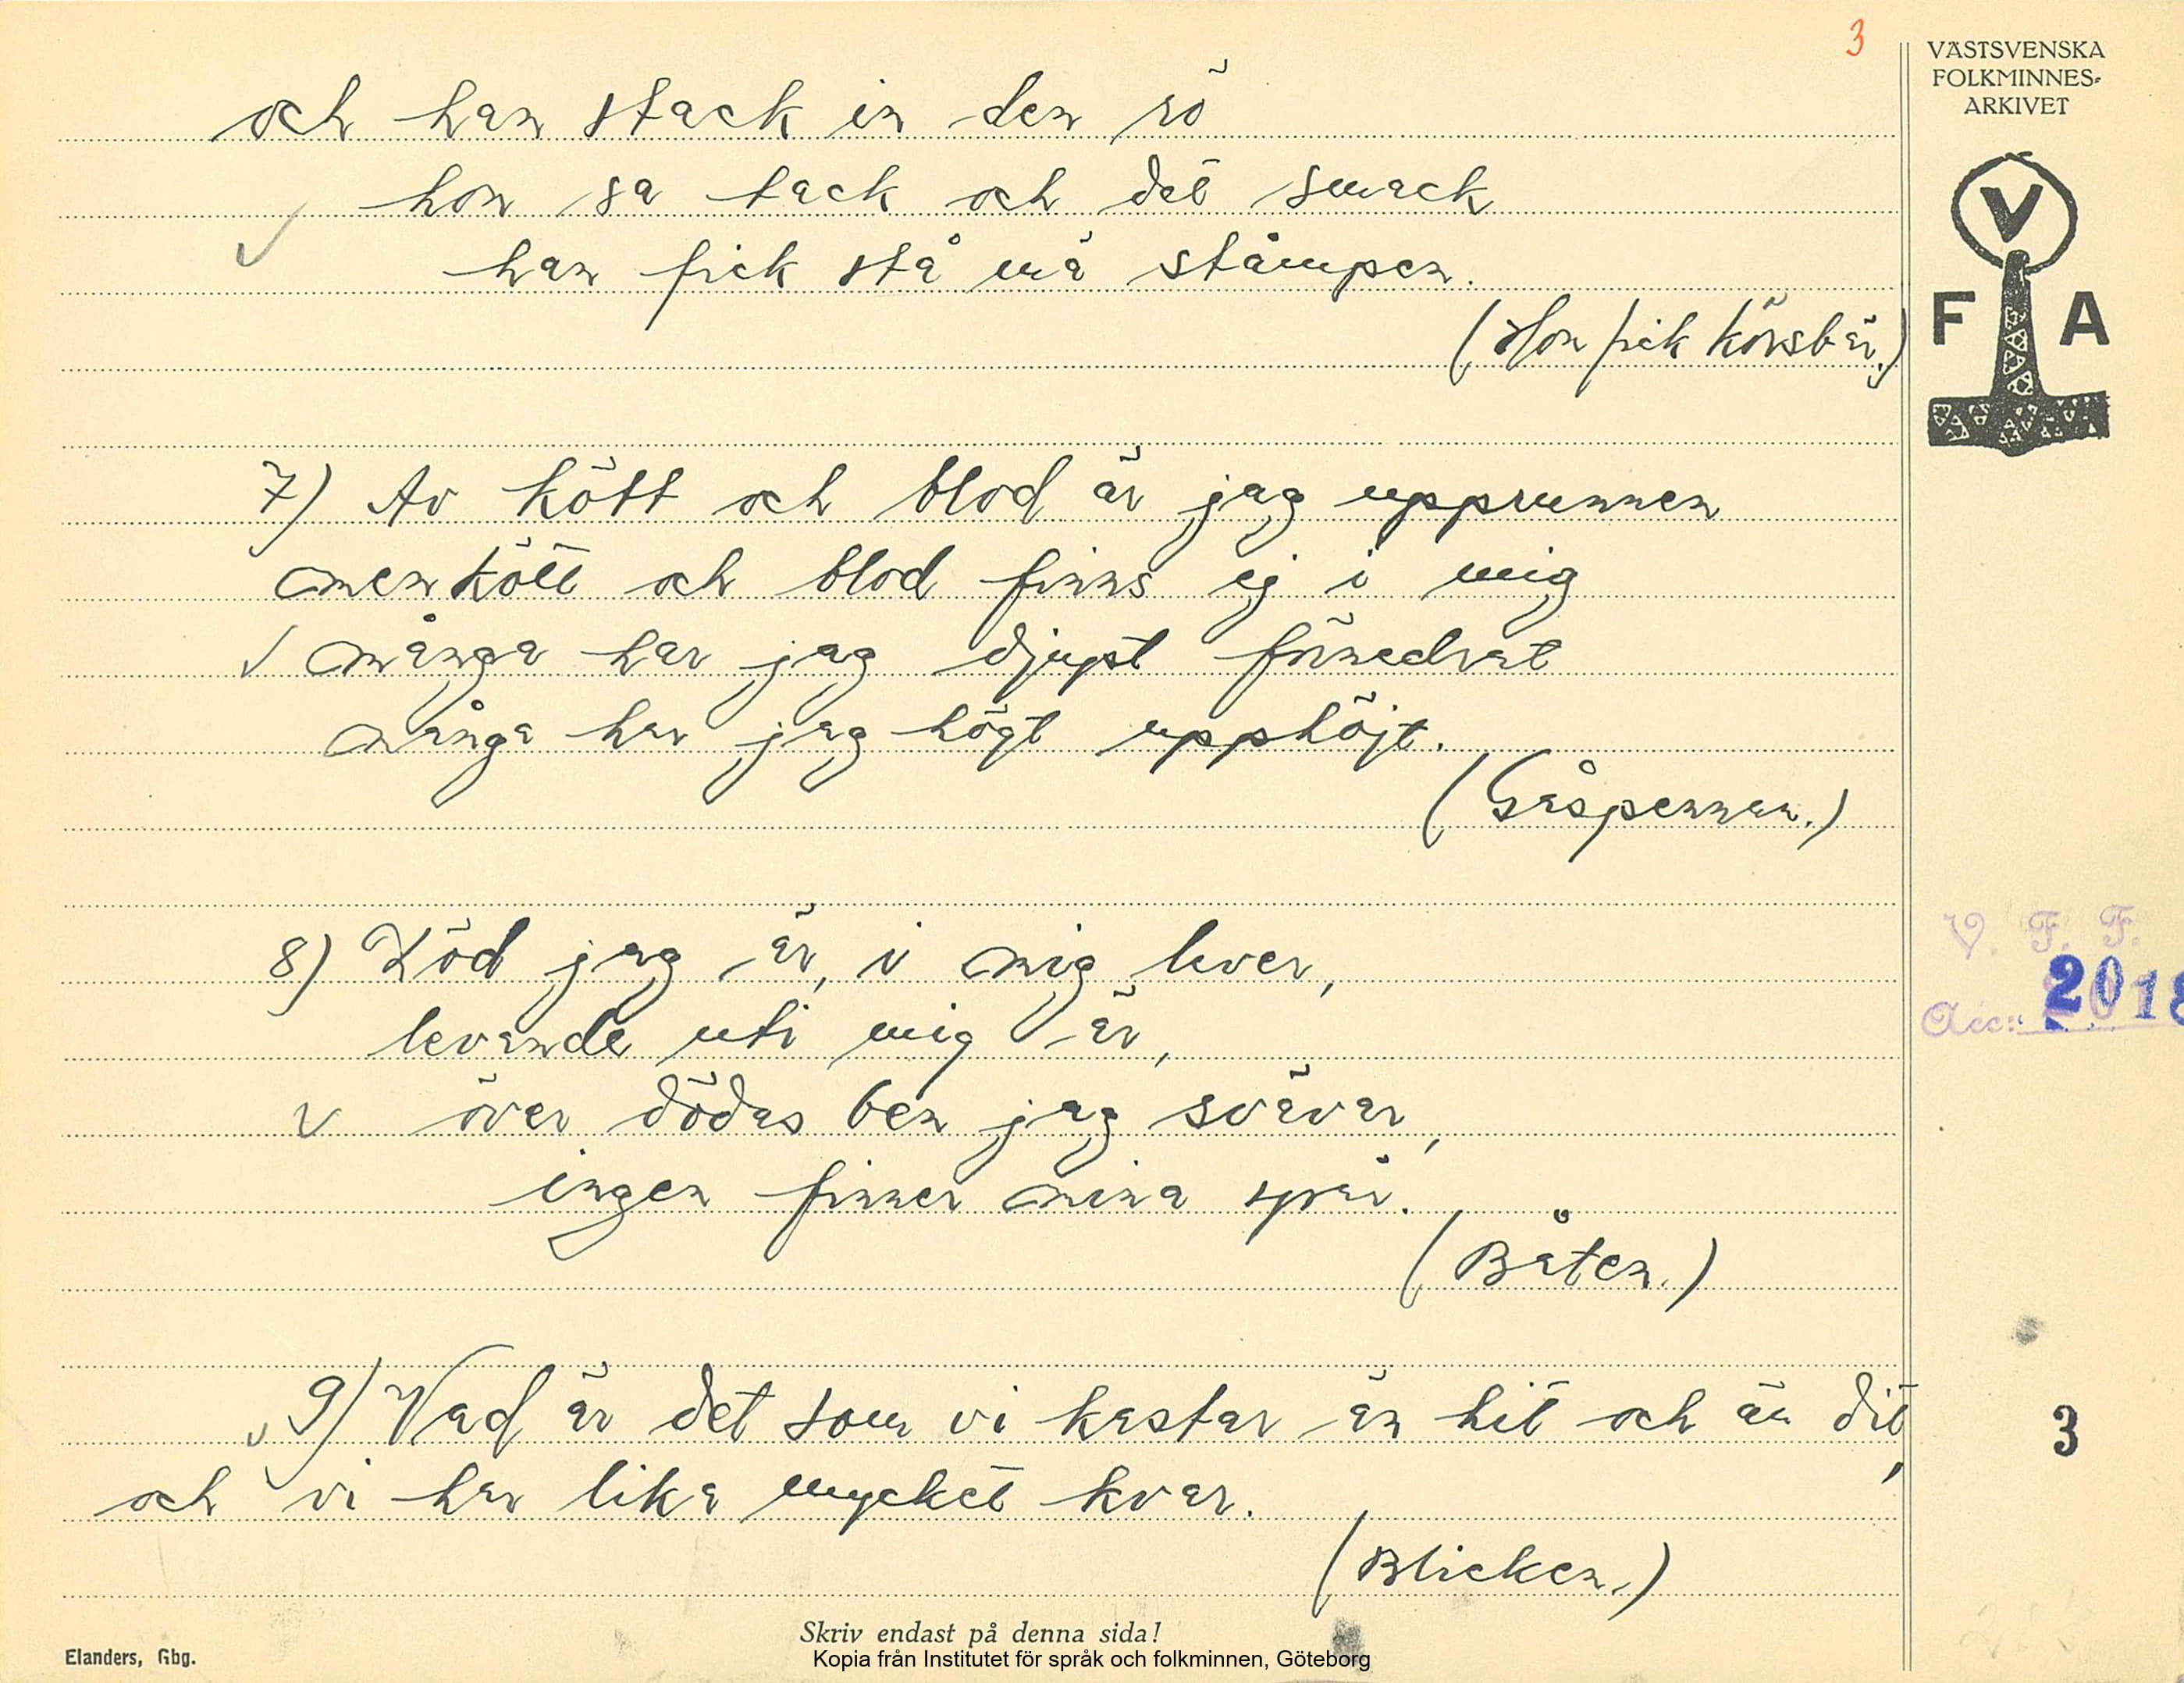 3
VÄSTSVENSKA
FOLKMINNES-
ARKIVET
V
F A
och han stack in den rö
hon sa tack och det smack
han fick stå mä stämpen.
(Hon fick körsbär.)
7) Av kött och blod är jag upprunnen
men kött och blod finns ej i mig
många har jag djupt förnedrat
många har jag högt upphöjt.
(Gåspennan.)
8) Död jag är, i mig lever,
levande uti mig är,
över dödas ben jag svävar,
ingen finner mina spår.
(Båten.)
9) Vad är det som vi kastar än hit och än dit,
och vi har lika mycket kvar.
(Blicken.)
V. F. F.
Acc: 2018
3
Skriv endast på denna sida!
Elanders, Gbg.
Kopia från Institutet för språk och folkminnen, Göteborg